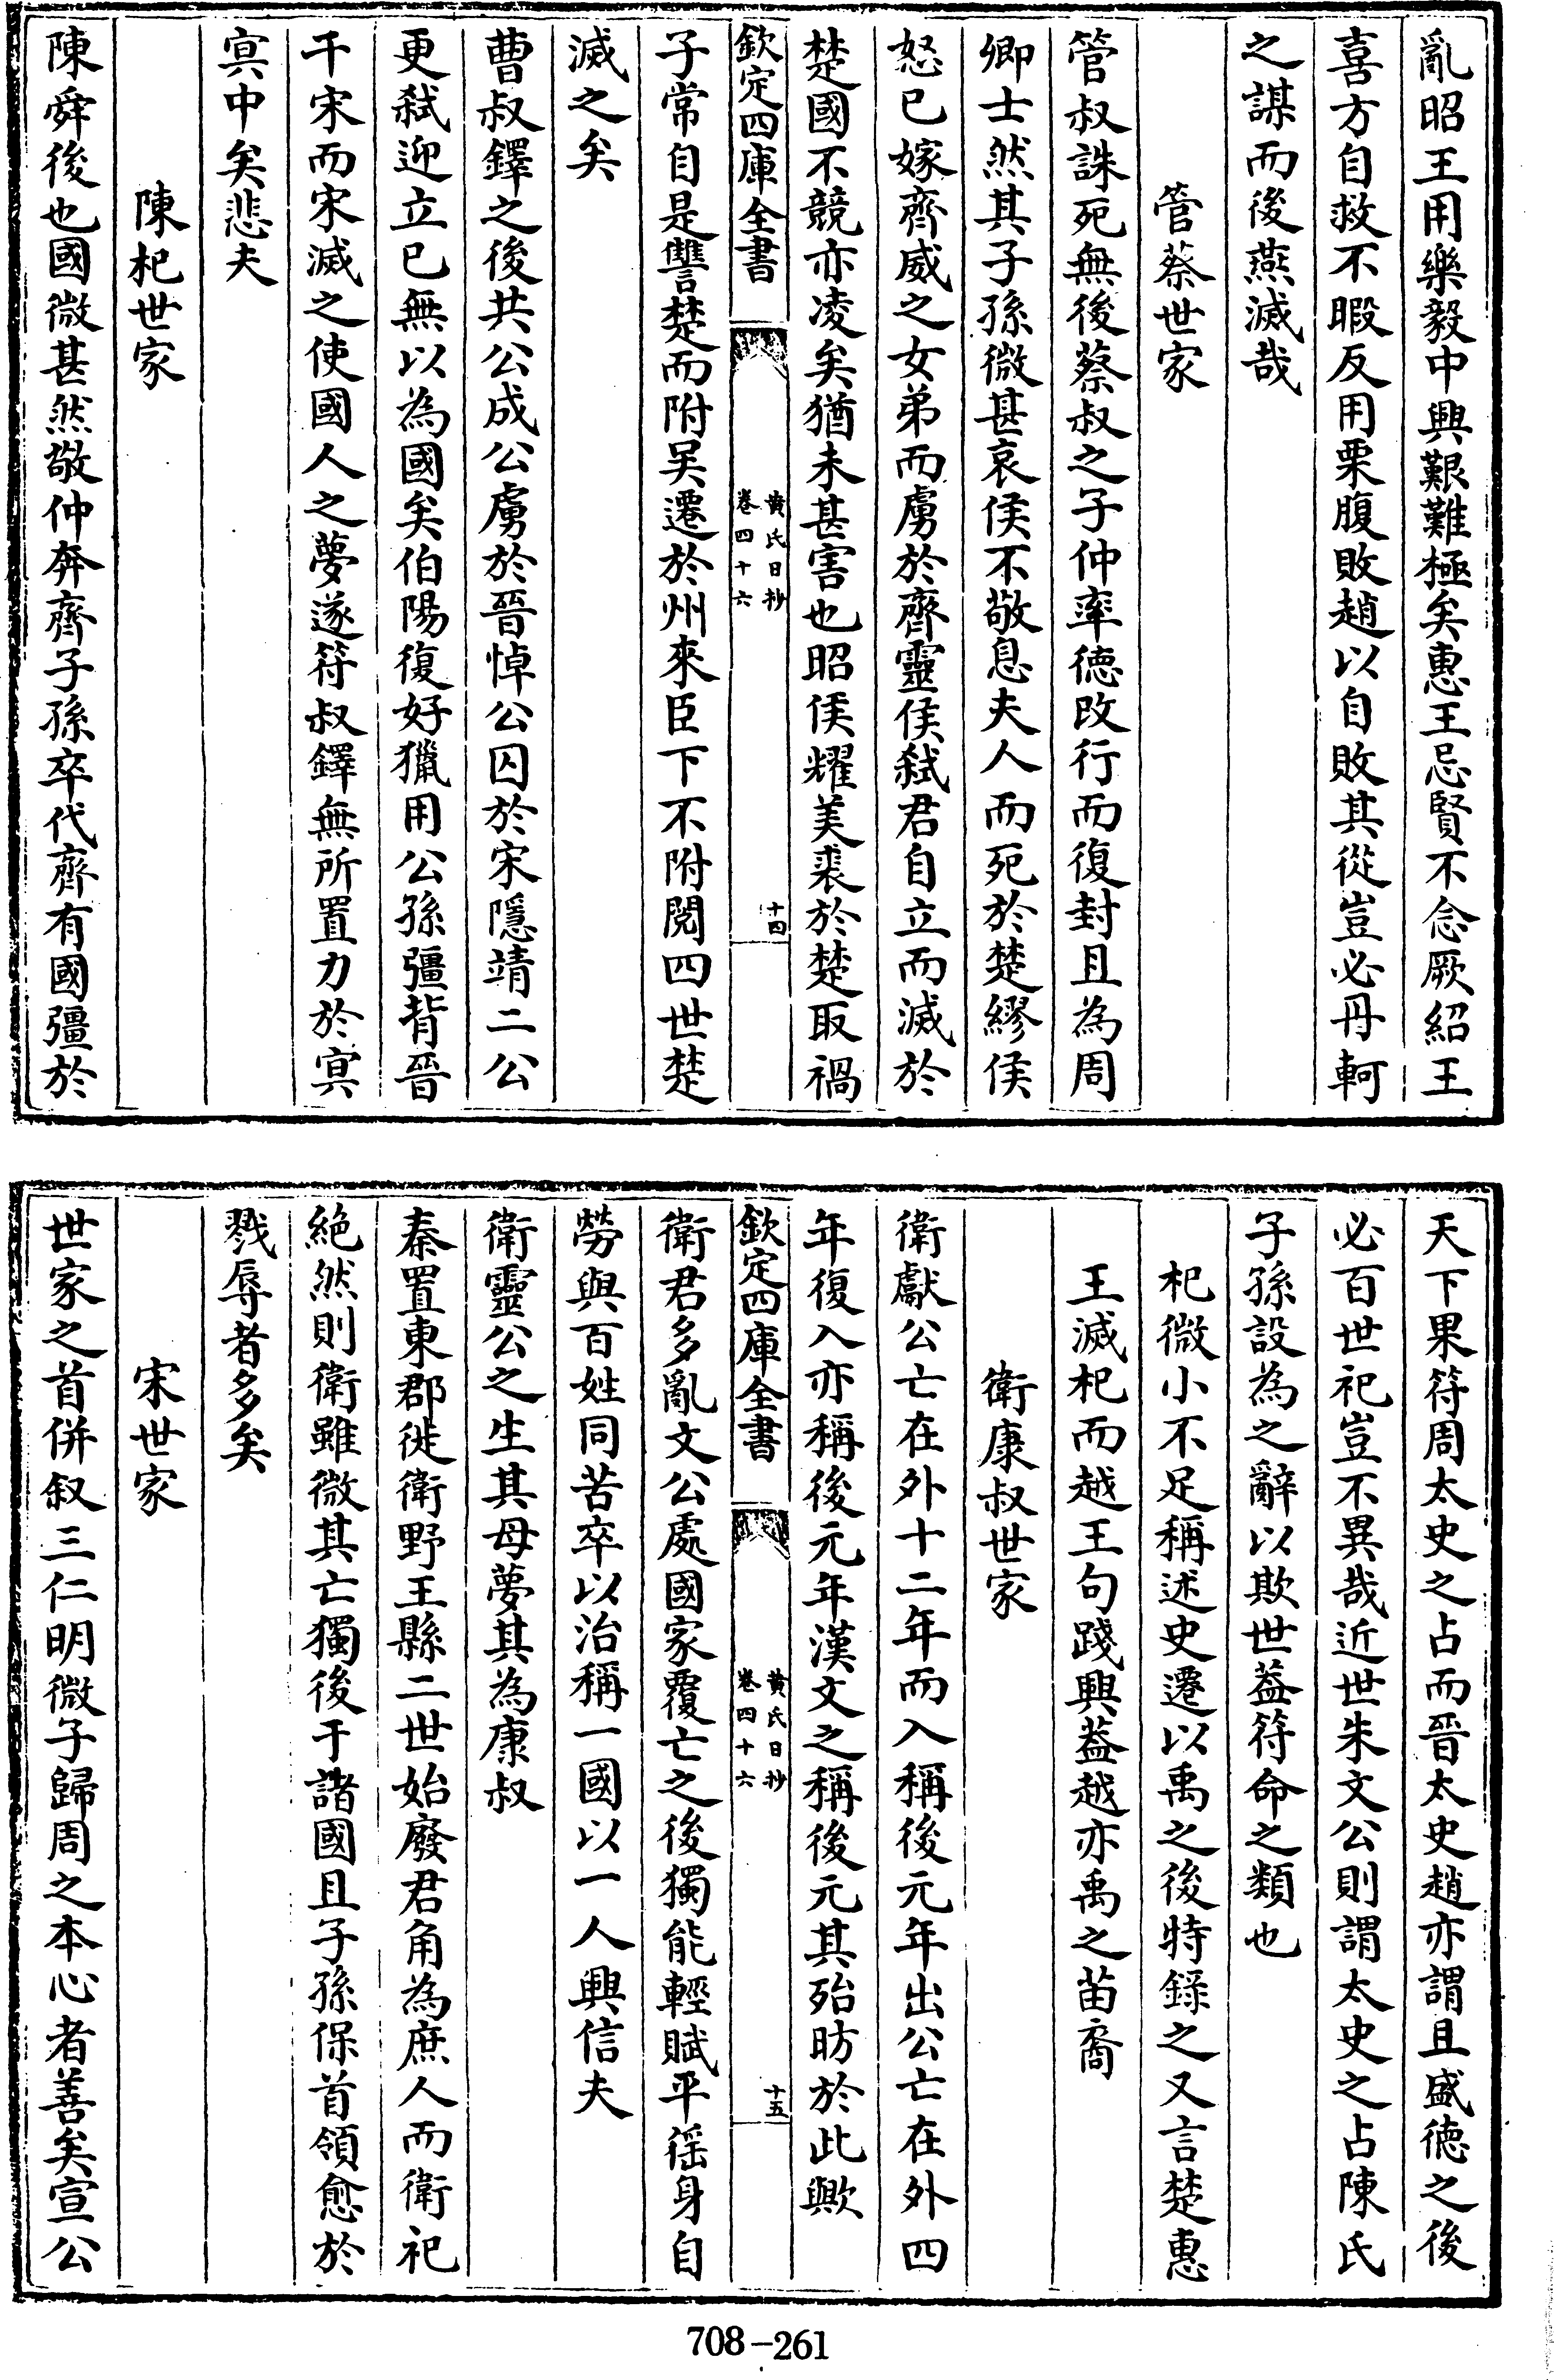 亂昭王用樂毅中興艱難極矣惠王忌賢不念厥紹王
喜方自救不暇反用栗腹敗趙以自敗其從豈必丹軻
之謀而後燕滅哉
管蔡世家
管叔誅死無後蔡叔之子仲率徳改行而復封且為周
卿士然其子孫微甚哀侯不敬息夫人而死於楚繆侯
怒已嫁齊威之女弟而虜於齊靈侯弑君自立而滅於
楚國不競亦凌矣猶未甚害也昭侯耀美裘於楚取禍
欽定四庫全書
黄氏日抄
卷四十六
十四
子常自是讐楚而附吳遷於州來臣下不附閱四世楚
滅之矣
曹叔鐸之後共公成公虜於晉悼公囚於宋隱靖二公
更弑迎立已無以為國矣伯陽復好獵用公孫彊背晉
干宋而宋滅之使國人之夢遂符叔鐸無所置力於冥
冥中矣悲夫
陳杞世家
陳舜後也國微甚然敬仲奔齊子孫卒代齊有國彊於
天下果符周太史之占而晉太史趙亦謂且盛徳之後
必百世祀豈不異哉近世朱文公則謂太史之占陳氏
子孫設為之辭以欺世葢符命之類也
杞微小不足稱述史遷以禹之後特錄之又言楚惠
王滅杞而越王句踐興葢越亦禹之苗裔
衛康叔世家
衛獻公亡在外十二年而入稱後元年出公亡在外四
年復入亦稱後元年漢文之稱後元其殆昉於此歟
欽定四庫全書
黄氏日抄
卷四十六
十五
衛君多亂文公處國家覆亡之後獨能輕賦平徭身自
勞與百姓同苦卒以治稱一國以一人興信夫
衛靈公之生其母夢其為康叔
秦置東郡徙衛野王縣二世始廢君角為庶人而衛祀
絶然則衛雖微其亡獨後于諸國且子孫保首領愈於
戮辱者多矣
宋世家
世家之首併叙三仁明微子歸周之本心者善矣宣公
708-261